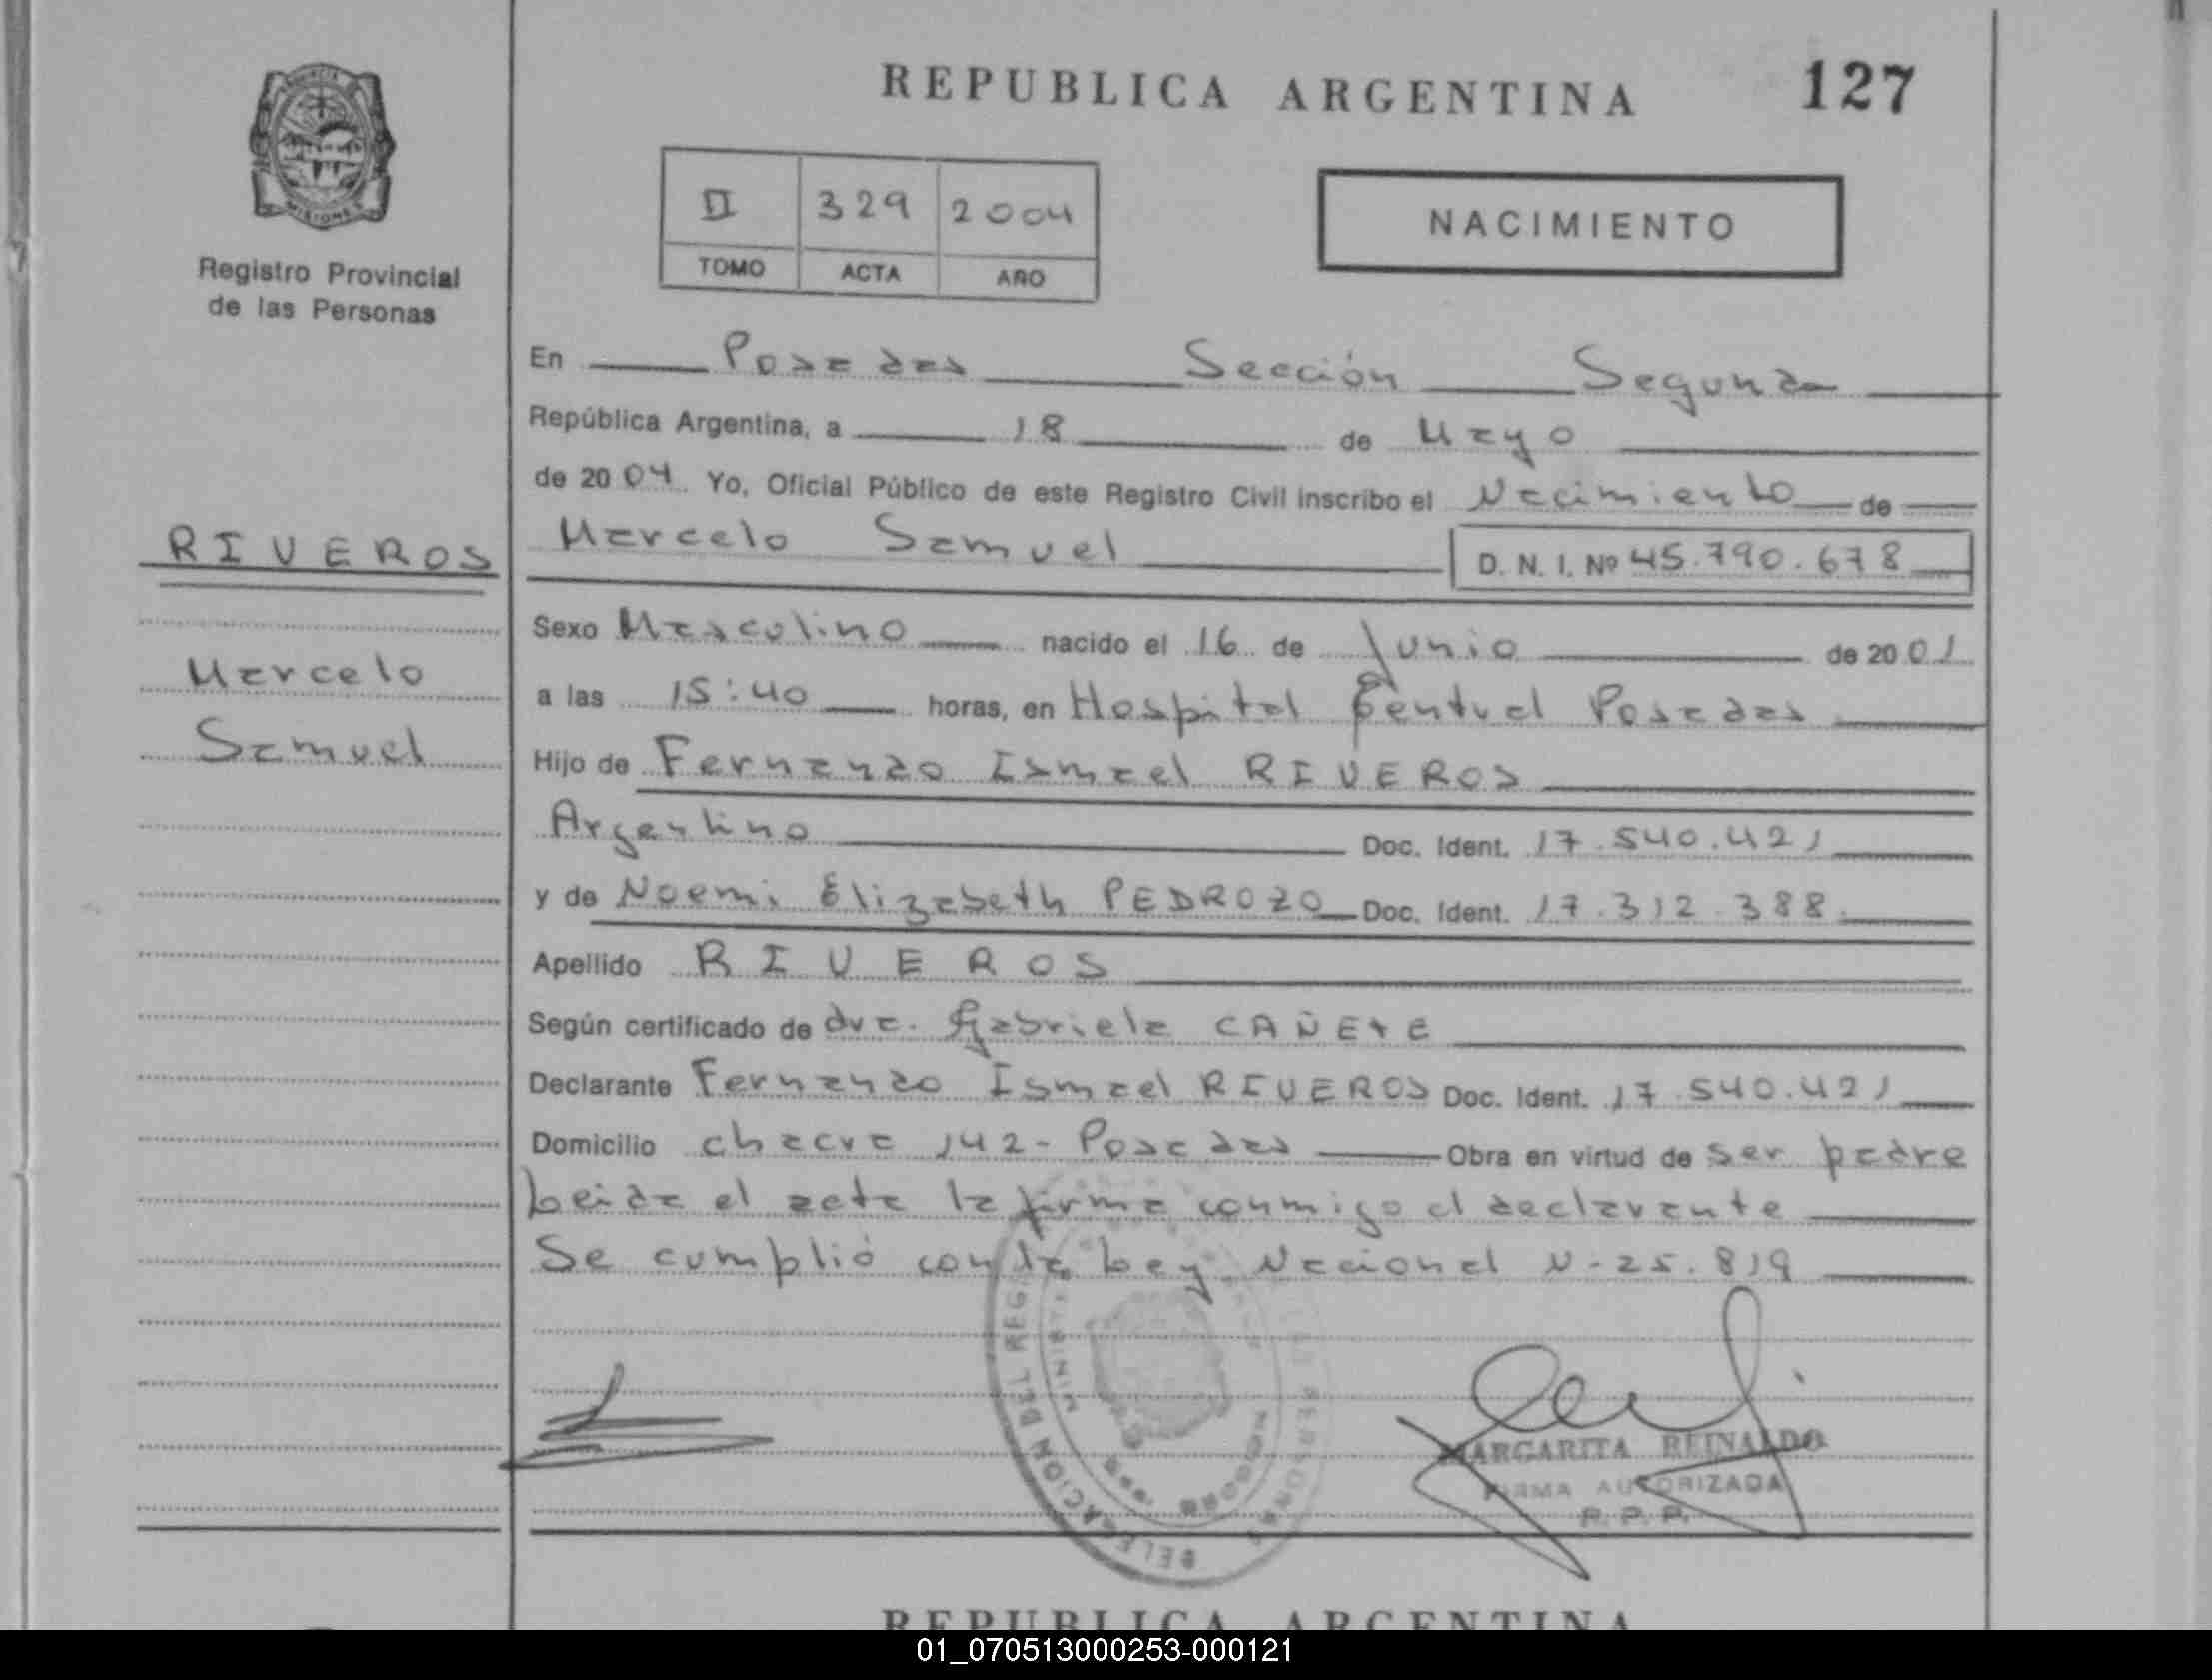 REPUBLICA ARGENTINA
127
PROVINCIA
MISIONES
Registro Provincial
de las Personas
II 329 2004
TOMO ACTA AÑO
NACIMIENTO
En Posadas Sección Segunda
República Argentina, a 18 de Mayo
de 2004. Yo, Oficial Público de este Registro Civil inscribo el Nacimiento de
Marcelo Samuel D. N. I. Nº 45.790.678
RIVEROS
Marcelo
Samuel
Sexo Masculino nacido el 16 de Junio de 2001
a las 15:40 horas, en Hospital Central Posadas
Hijo de Fernando Ismael RIVEROS
Argentino Doc. Ident. 17.540.421
y de Noemi Elizabeth PEDROZO Doc. Ident. 17.312.388
Apellido RIVEROS
Según certificado de dra. Gabriela CAÑETE
Declarante Fernando Ismael RIVEROS Doc. Ident. 17.540.421
Domicilio chacra 142 - Posadas Obra en virtud de ser padre
Leida el acta la firma conmigo el declarante
Se cumplió con la Ley Nacional N-25.819
DELEGACION DEL REG
MARGARITA REINALDO
FIRMA AUTORIZADA
R. P. P.
REPUBLICA ARGENTINA
01_070513000253-000121